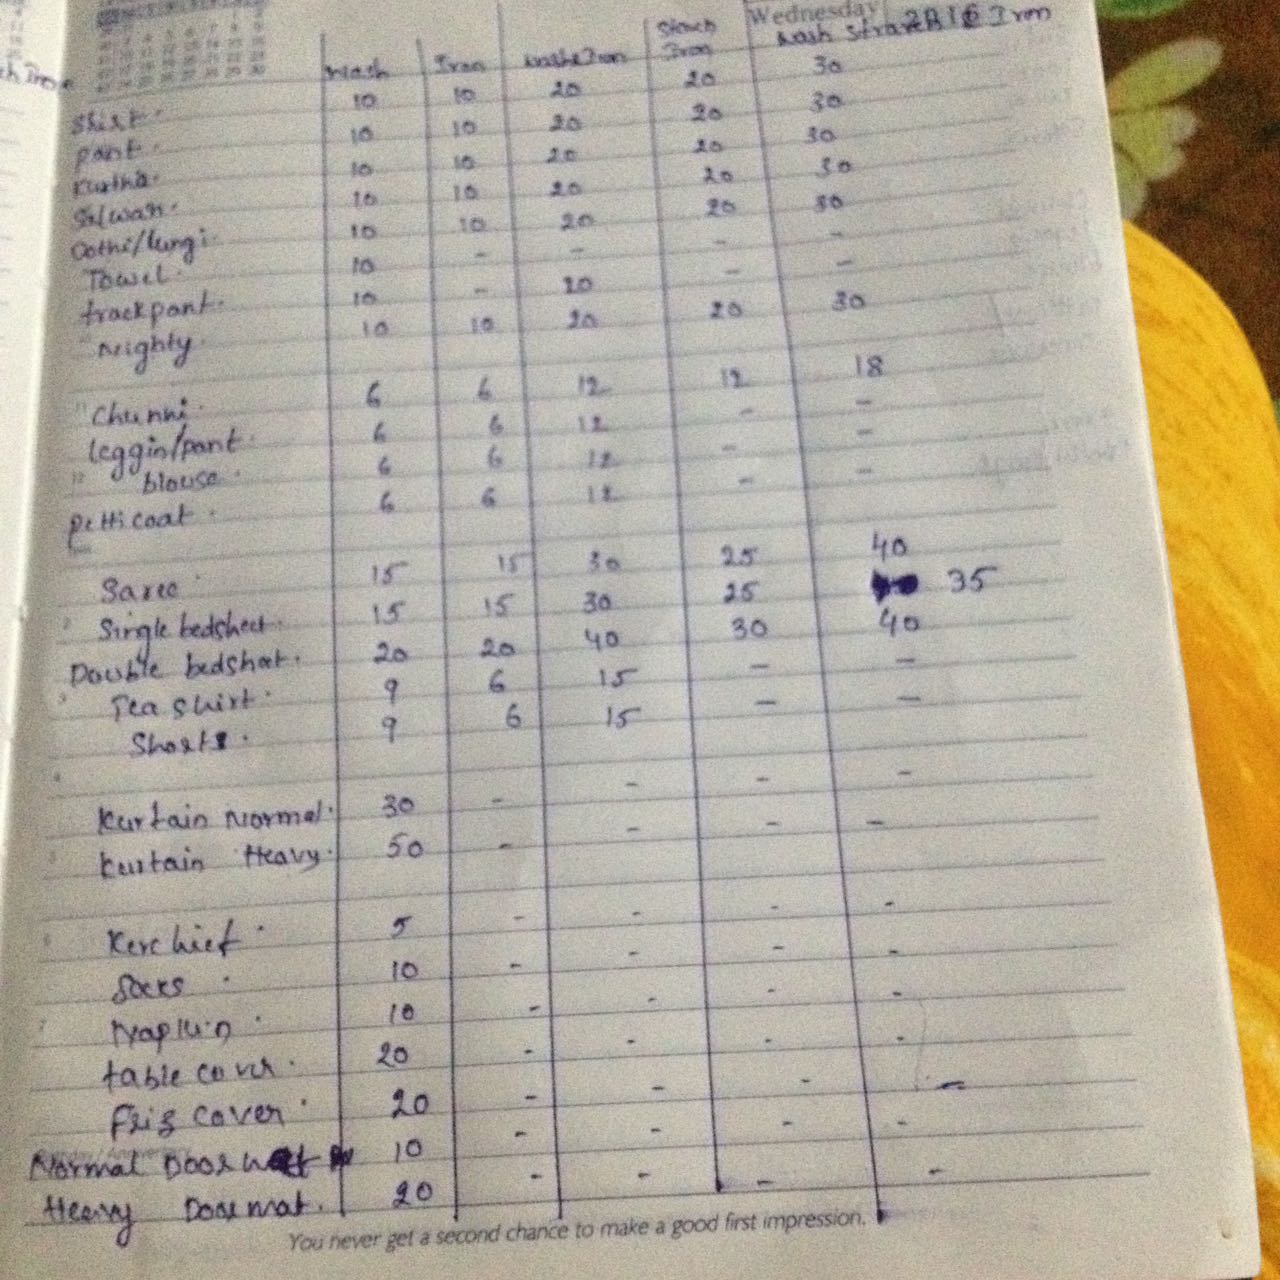 Wednesday
Wash Iron Wash&Iron Starch Iron Wash Starch Iron
Shirt. 10 10 20 20 30
Pant. 10 10 20 20 30
Kurtha. 10 10 20 20 30
Salwar. 10 10 20 20 30
Dothi/lungi. 10 10 20 20 30
Towel. 10 - - - -
trackpant. 10 - 20 - -
Nighty 10 10 20 20 30
Chunni. 6 6 12 12 18
leggin/pant. 6 6 12 - -
blouse. 6 6 12 - -
Petticoat. 6 6 12 - -
Saree 15 15 30 25 40
Single bedsheet. 15 15 30 25 35
Double bedshat. 20 20 40 30 40
Tea shirt. 9 6 15 - -
Shorts. 9 6 15 - -
Kurtain Normal. 30 - - - -
Kurtain Heavy. 50 - - - -
Kerchief. 5 - - - -
Socks. 10 - - - -
Napkin. 10 - - - -
table cover. 20 - - - -
Frig cover. 20 - - - -
Normal Door 10 - - - -
Heavy Doormat. 20 - - - -
You never get a second chance to make a good first impression.